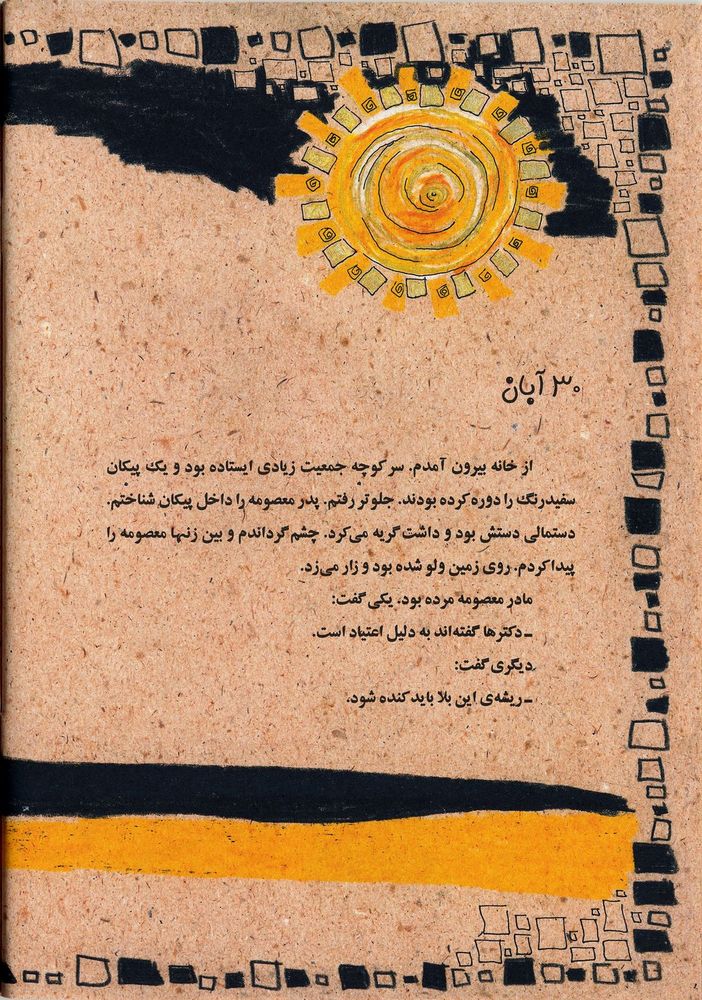 ۳۰ آبان
از خانه بیرون آمدم. سر کوچه جمعیت زیادی ایستاده بود و یک پیکان
سفیدرنگ را دوره کرده بودند. جلوتر رفتم. پدر معصومه را داخل پیکان شناختم.
دستمالی دستش بود و داشت گریه می‌کرد. چشم گرداندم و بین زنها معصومه را
پیدا کردم. روی زمین ولو شده بود و زار می‌زد.
مادر معصومه مرده بود. یکی گفت:
ـ دکترها گفته‌اند به دلیل اعتیاد است.
دیگری گفت:
ـ ریشه‌ی این بلا باید کنده شود.